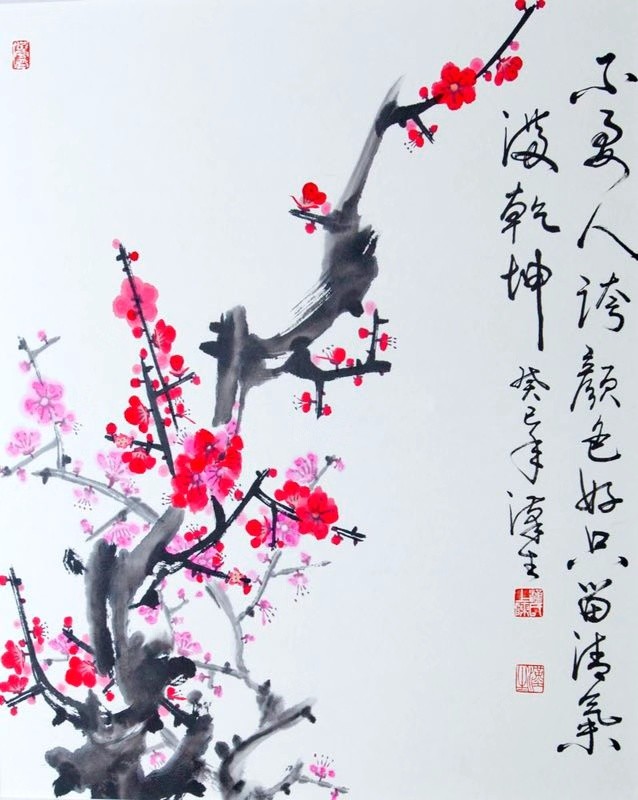 不要人誇顏色好只留清氣
滿乾坤
癸巳年 漢生